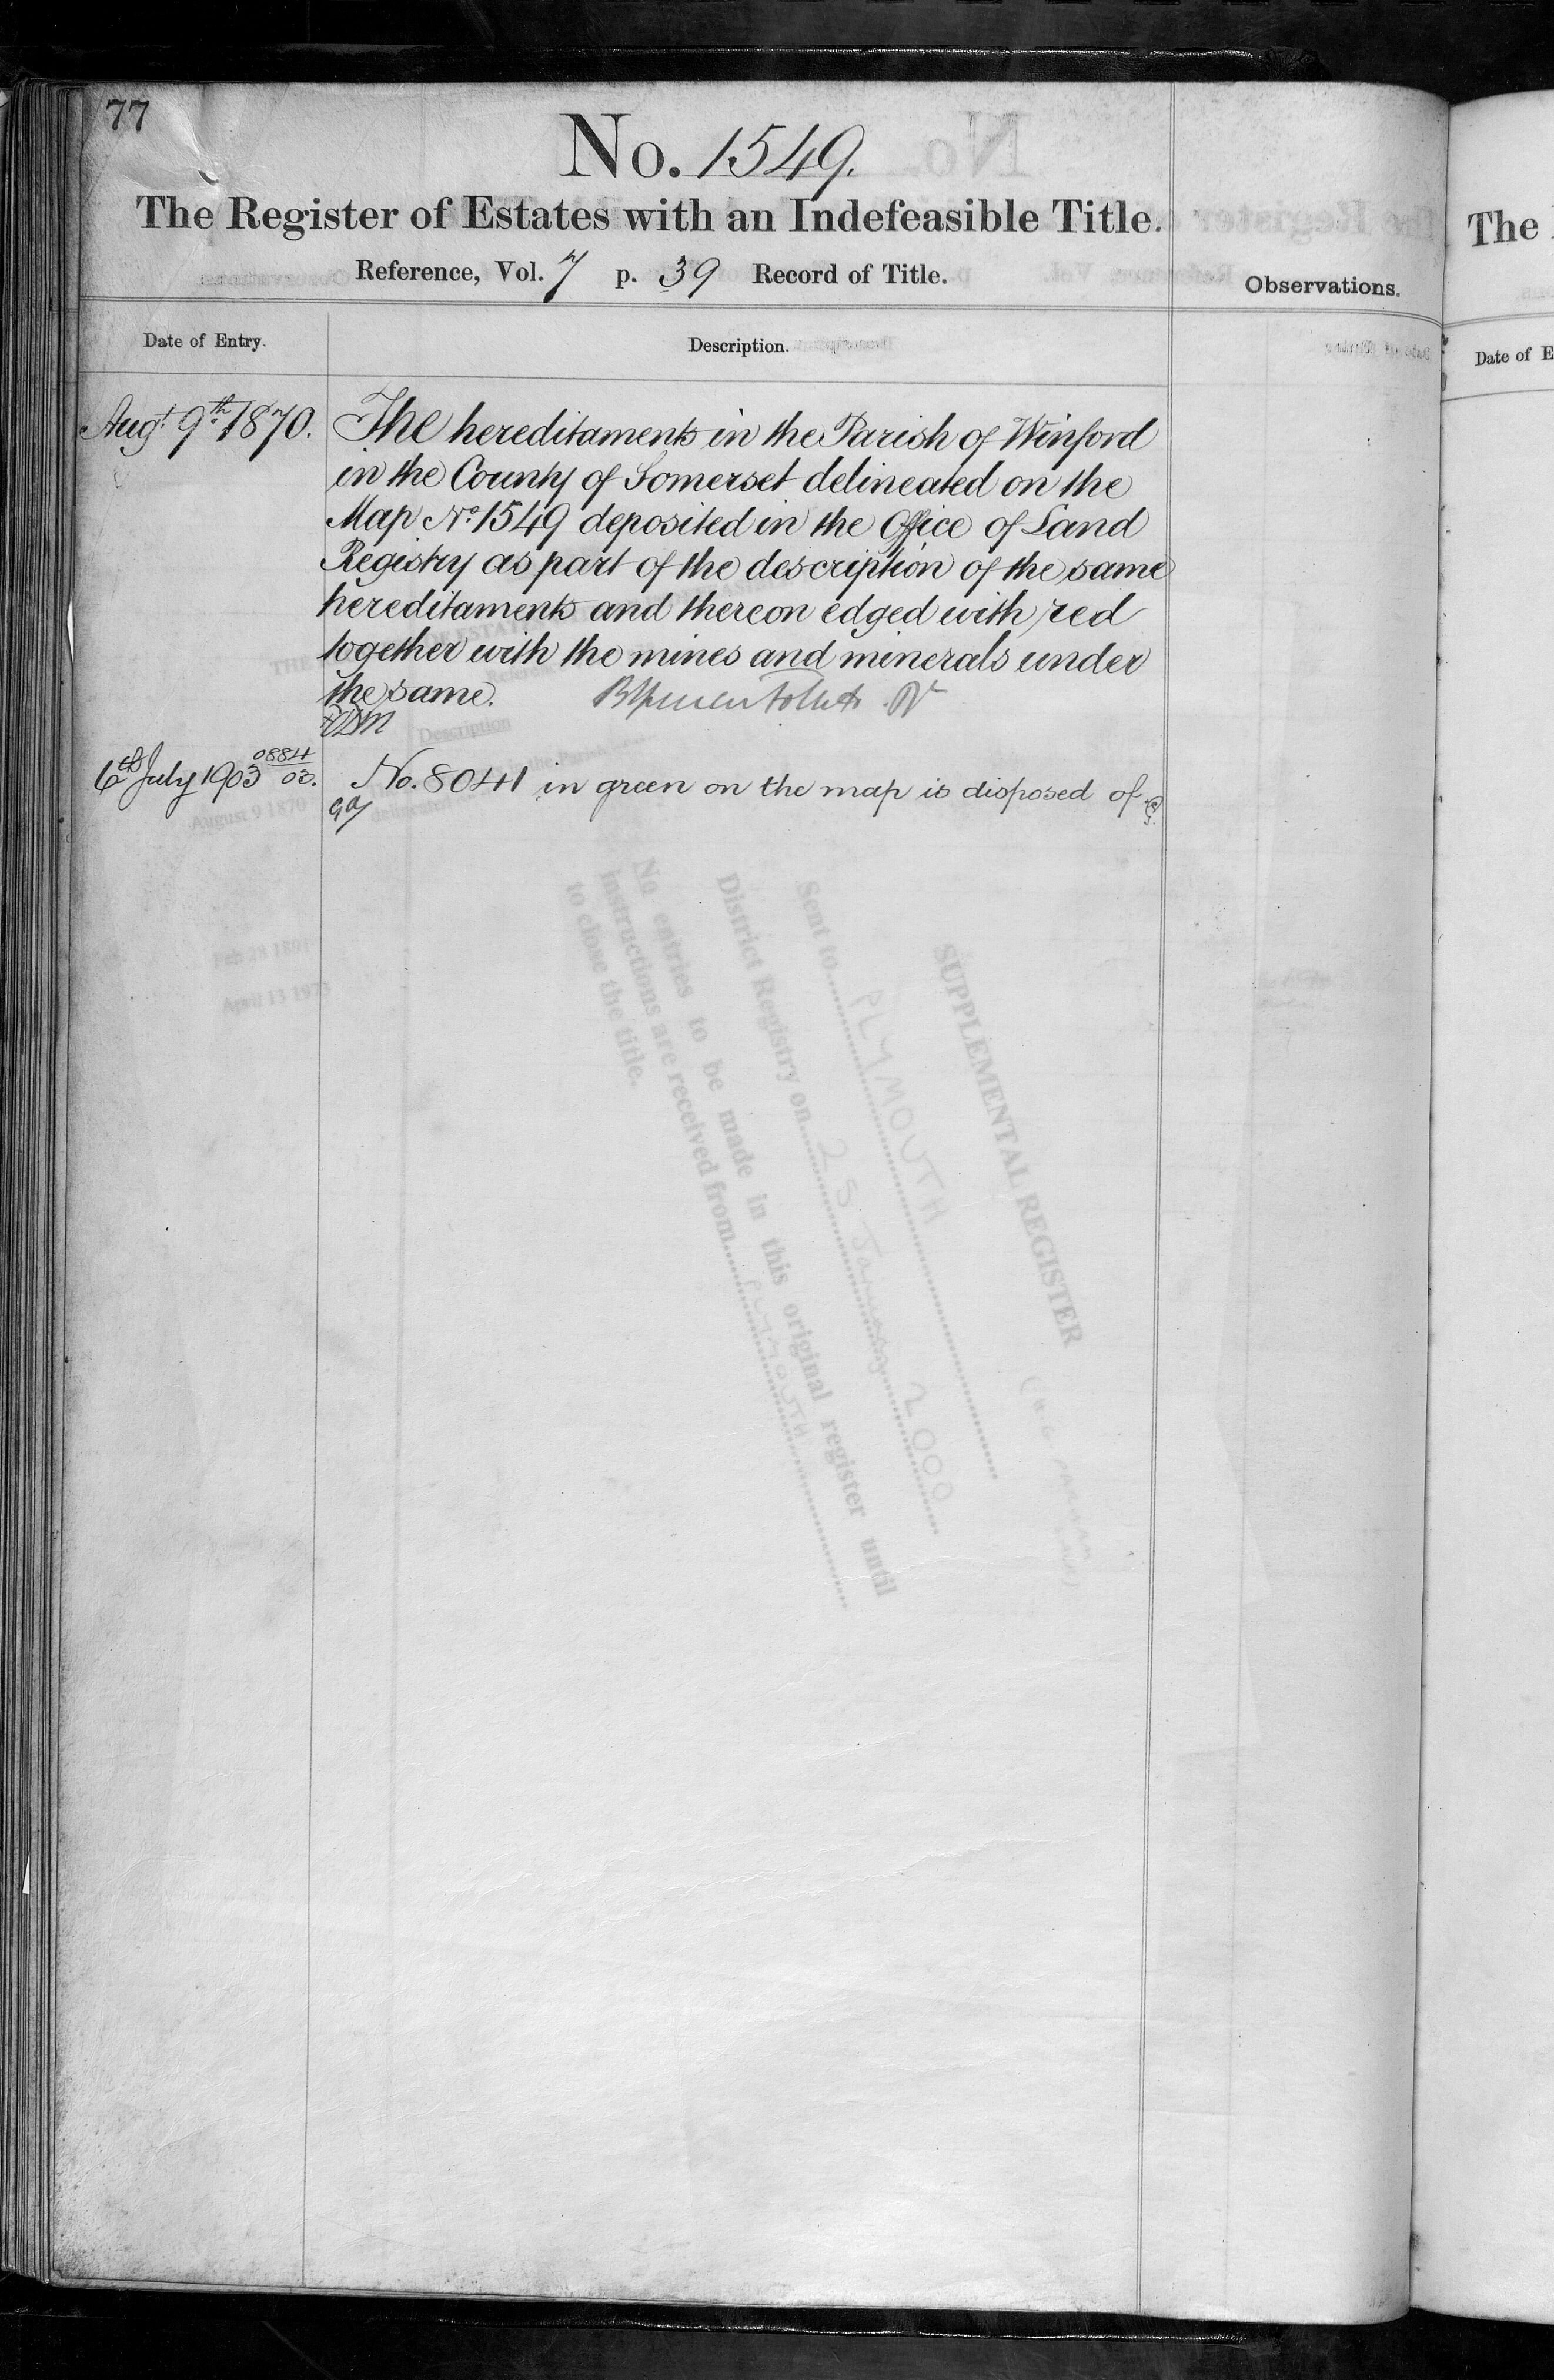 77
No. 1549.
The Register of Estates with an Indefeasible Title.
Reference, Vol. 7 p. 39 Record of Title.
Observations.
Date of Entry.
Description.
Augt. 9th. 1870.
The hereditaments in the Parish of Winford
in the County of Somerset delineated on the
Map No. 1549 deposited in the Office of Land
Registry as part of the description of the same
hereditaments and thereon edged with red
together with the mines and minerals under
the same.
6th July 1903 0884/03.
No. 8041 in green on the map is disposed of
Description
August 9 1870
Feb 28 1891
April 13 1973
SUPPLEMENTAL REGISTER
Sent to PLYMOUTH
District Registry on 25 January 2000
No entries to be made in this original register until
instructions are received from PLYMOUTH
to close the title.
The
Date of E